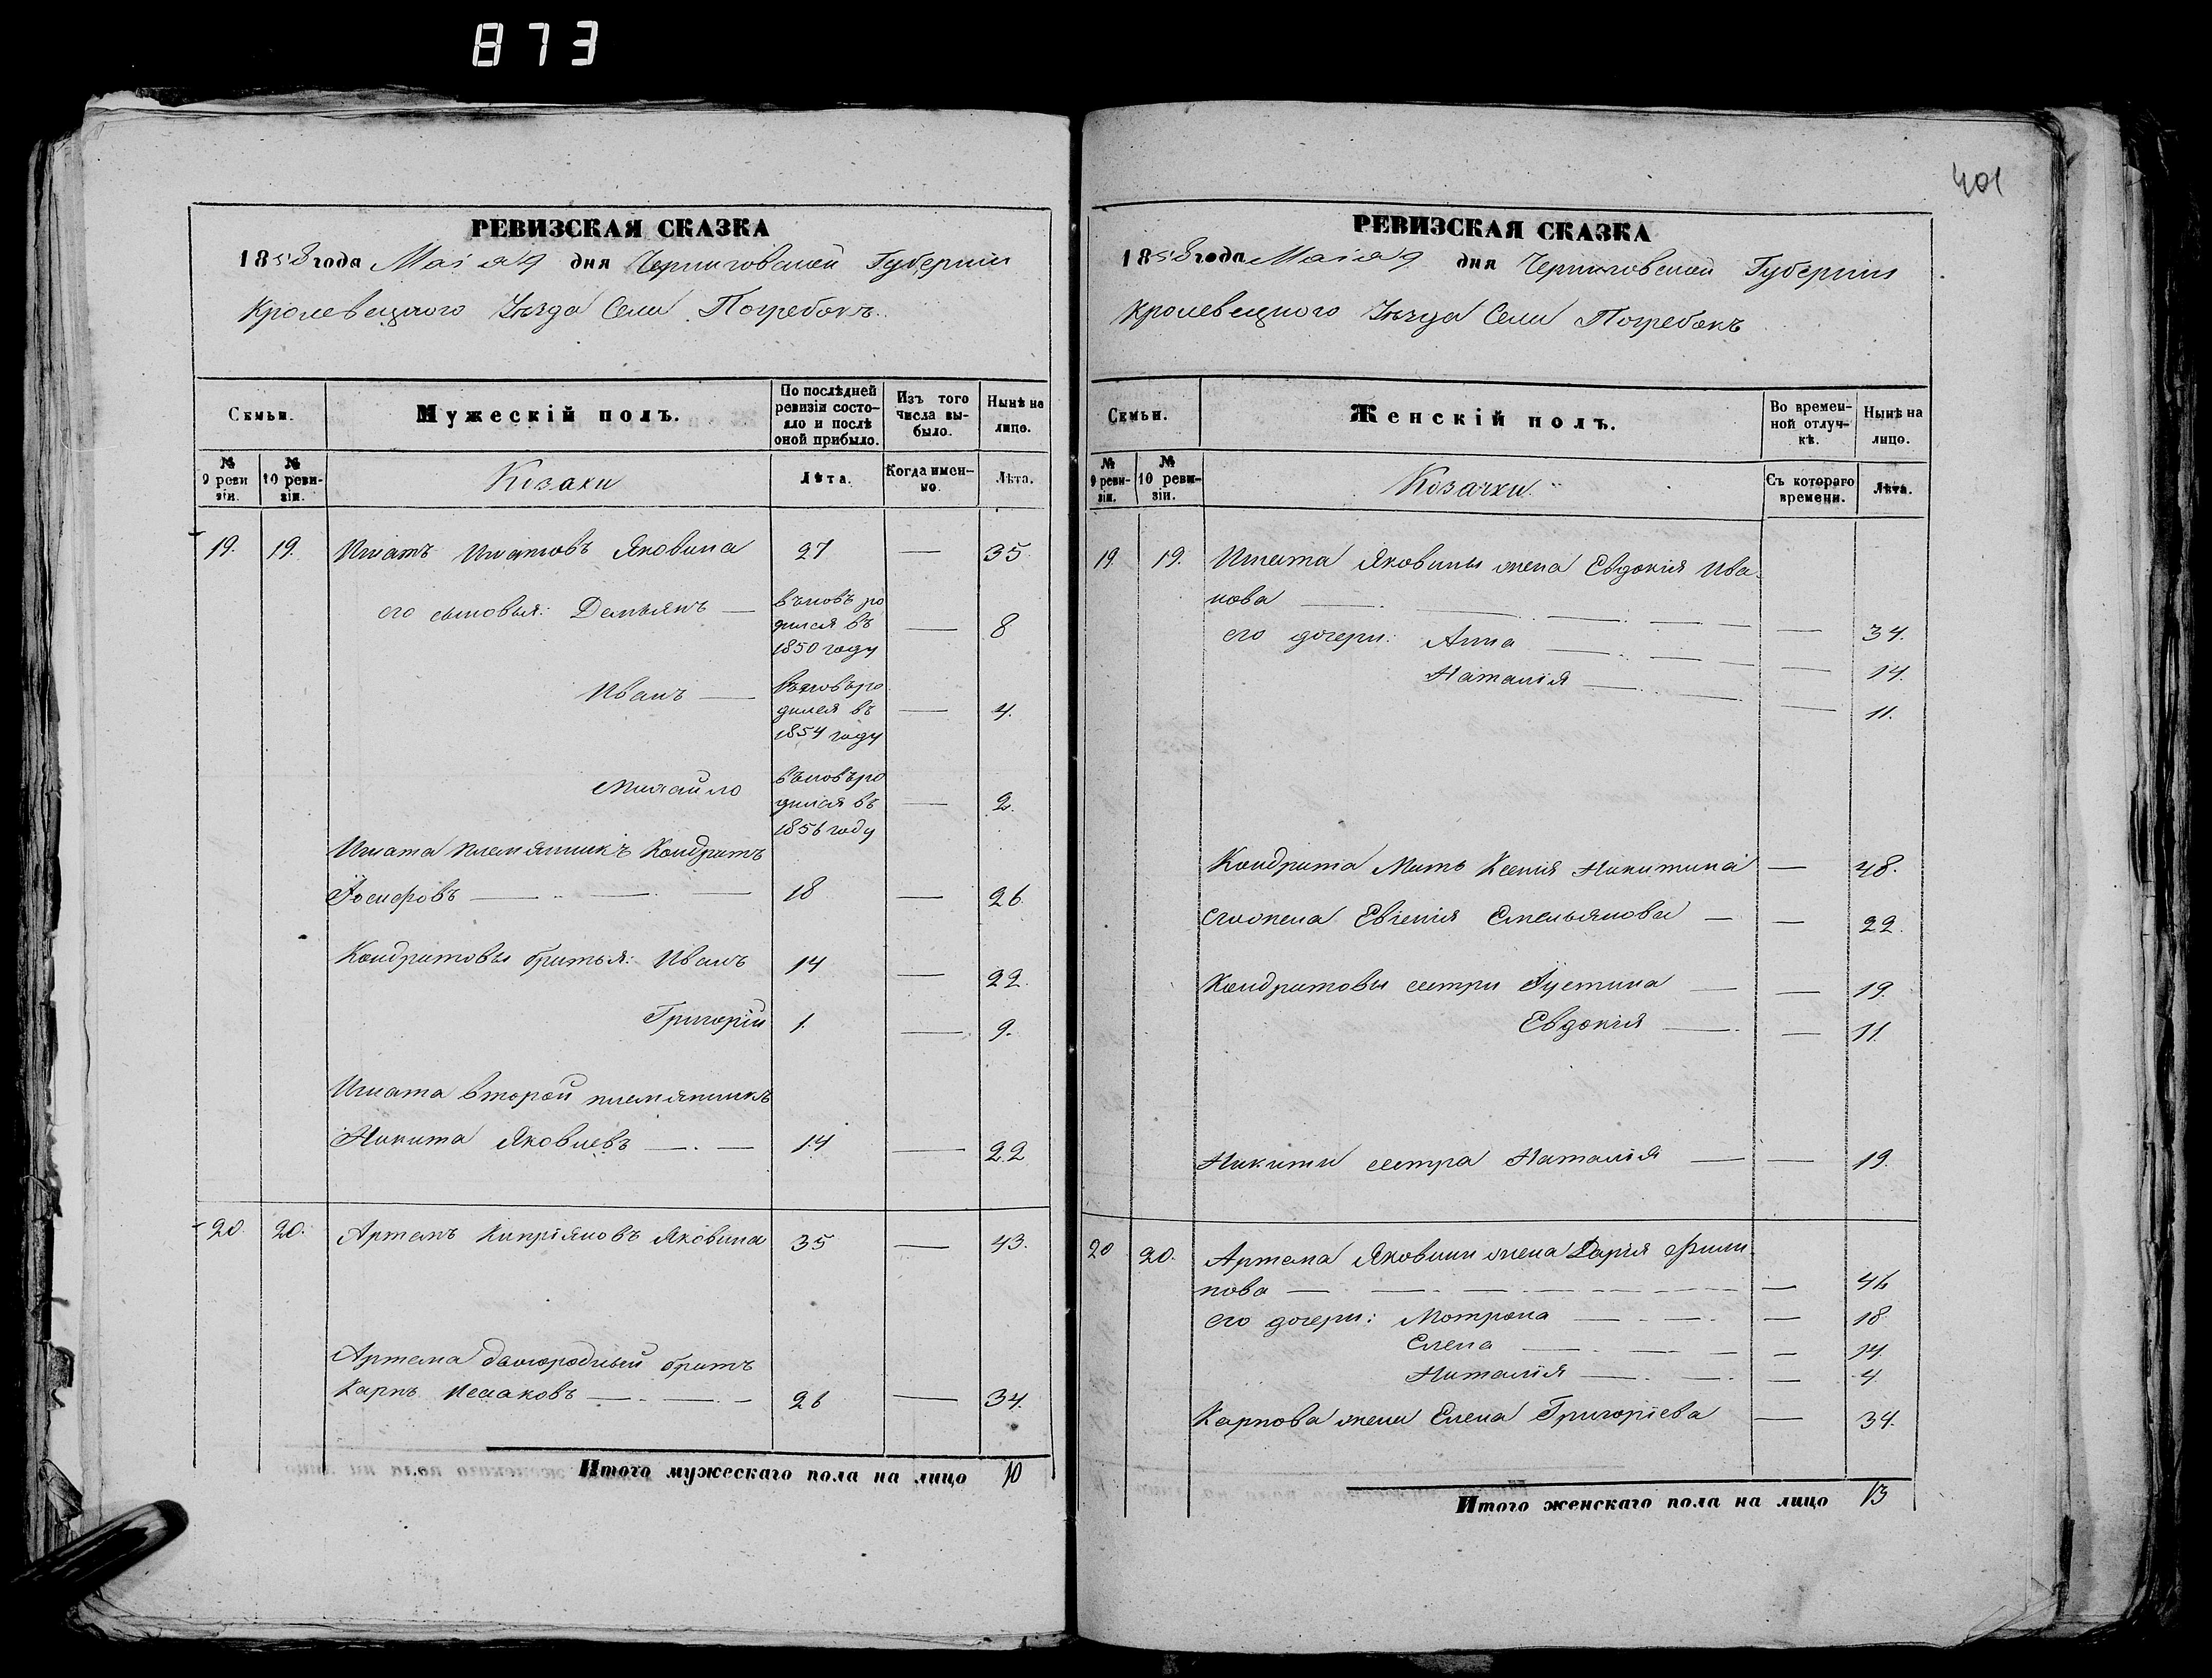 873
401
РЕВИЗСКАЯ СКАЗКА
1858 года Маія 9 дня Черниговской Губерніи
Кролевецкого Уѣзда Села Погребокъ.
Семьи.
Мужескій полъ.
По послѣдней ревизіи состояло и послѣ оной прибыло.
Изъ того числа выбыло.
Нынѣ на лицо.
№ 9 ревизіи.
№ 10 ревизіи.
Козаки
Лѣта.
Когда именно.
Лѣта.
19. 19. Игнатъ Игнатовъ Яковина 27 — 35
его сыновья: Демьянъ — въновь ро
дился въ — 8
1850 году
Иванъ — въновь ро
дился въ — 4.
1854 году
Михайло въновь ро
дился въ — 2.
1856 году
Игната племянникъ Кондратъ
Іосифовъ — 18 — 26
Кондратовы братья: Иванъ 14 — 22.
Григорій 1. — 9.
Игната второй племянникъ
Никита Яковлевъ — 14 — 22
20. 20. Артемъ Кипріяновъ Яковина 35 — 43.
Артема двоюродный братъ
Карпъ Исааковъ — 26 — 34.
Итого мужескаго пола на лицо 10
РЕВИЗСКАЯ СКАЗКА
1858 года Маія 9 дня Черниговской Губерніи
Кролевецкого Уѣзда Села Погребокъ
Семьи.
Женскій полъ.
Во временной отлучкѣ.
Нынѣ на лицо.
№ 9 ревизіи.
№ 10 ревизіи.
Козачки.
Съ котораго времени.
Лѣта.
19. 19. Игната Яковины жена Евдокія Ива-
нова — — 34.
его дочери: Анна — — 14.
Наталія — — 11.
Кондрата Мать Ксенія Никитина — 48.
его жена Евгенія Емельянова — — 22.
Кондратовы сестры Іустина — — 19.
Евдокія — — 11.
Никиты сестра Наталія — — 19.
20 20. Артема Яковины жена Дарія Фили-
пова — — 46
его дочери: Мотрона — — 18.
Елена — — 14.
Наталія — — 4.
Карпова жена Елена Григоріева — 34.
Итого женскаго пола на лицо 13